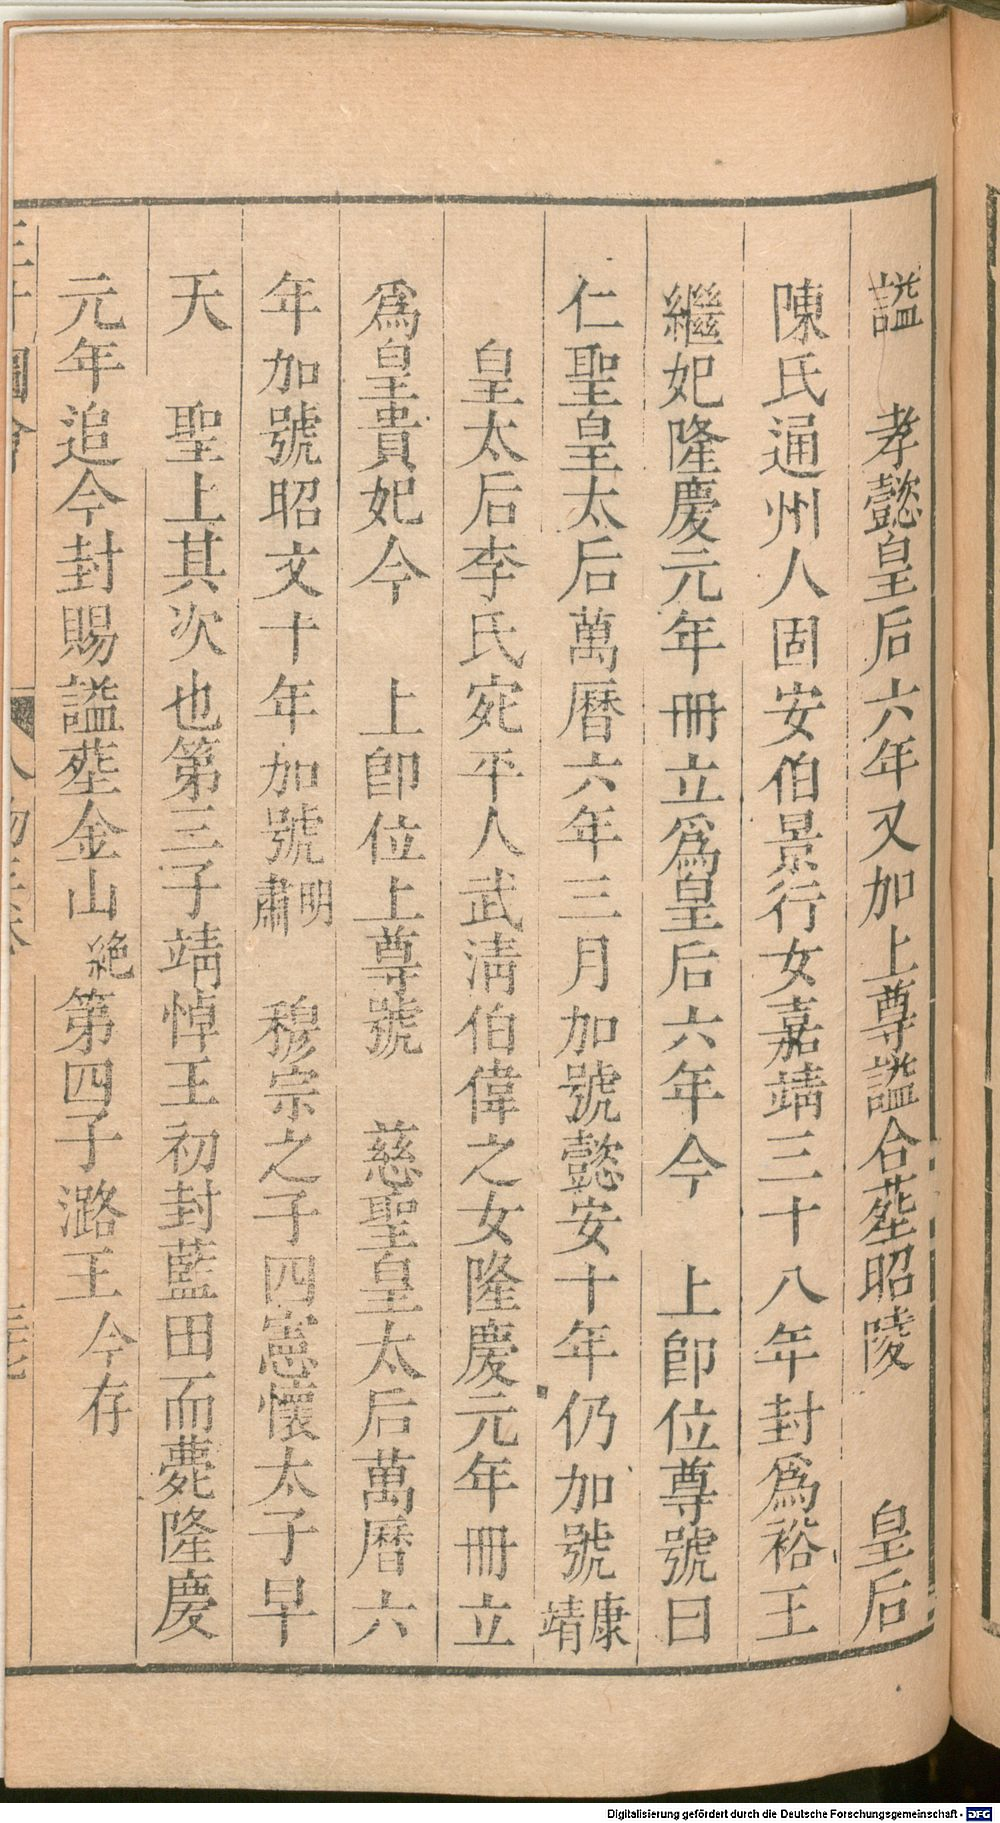 謚　孝懿皇后六年又加上尊謚合塟昭陵　　皇后
陳氏通州人固安伯景行女嘉靖三十八年封爲裕王
繼妃隆慶元年冊立爲皇后六年今　上卽位尊號曰
仁聖皇太后萬曆六年三月加號懿安十年仍加號康靖
皇太后李氏宛平人武清伯偉之女隆慶元年冊立
爲皇貴妃今　上卽位上尊號　慈聖皇太后萬曆六
年加號昭文十年加號明肅　穆宗之子四憲懷太子早
夭　聖上其次也第三子靖悼王初封藍田而薨隆慶
元年追今封賜謚塟金山絶第四子潞王今存
圖會
人物
Digitalisierung gefördert durch die Deutsche Forschungsgemeinschaft - DFG